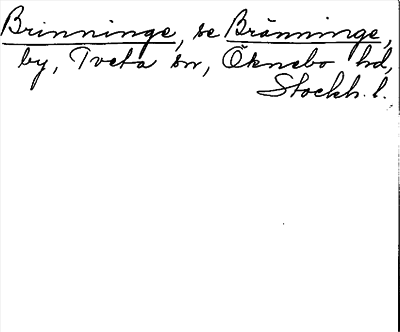 Brinninge, se Bränninge,
by, Tveta sn, Öknebo hd,
Stockh. l.